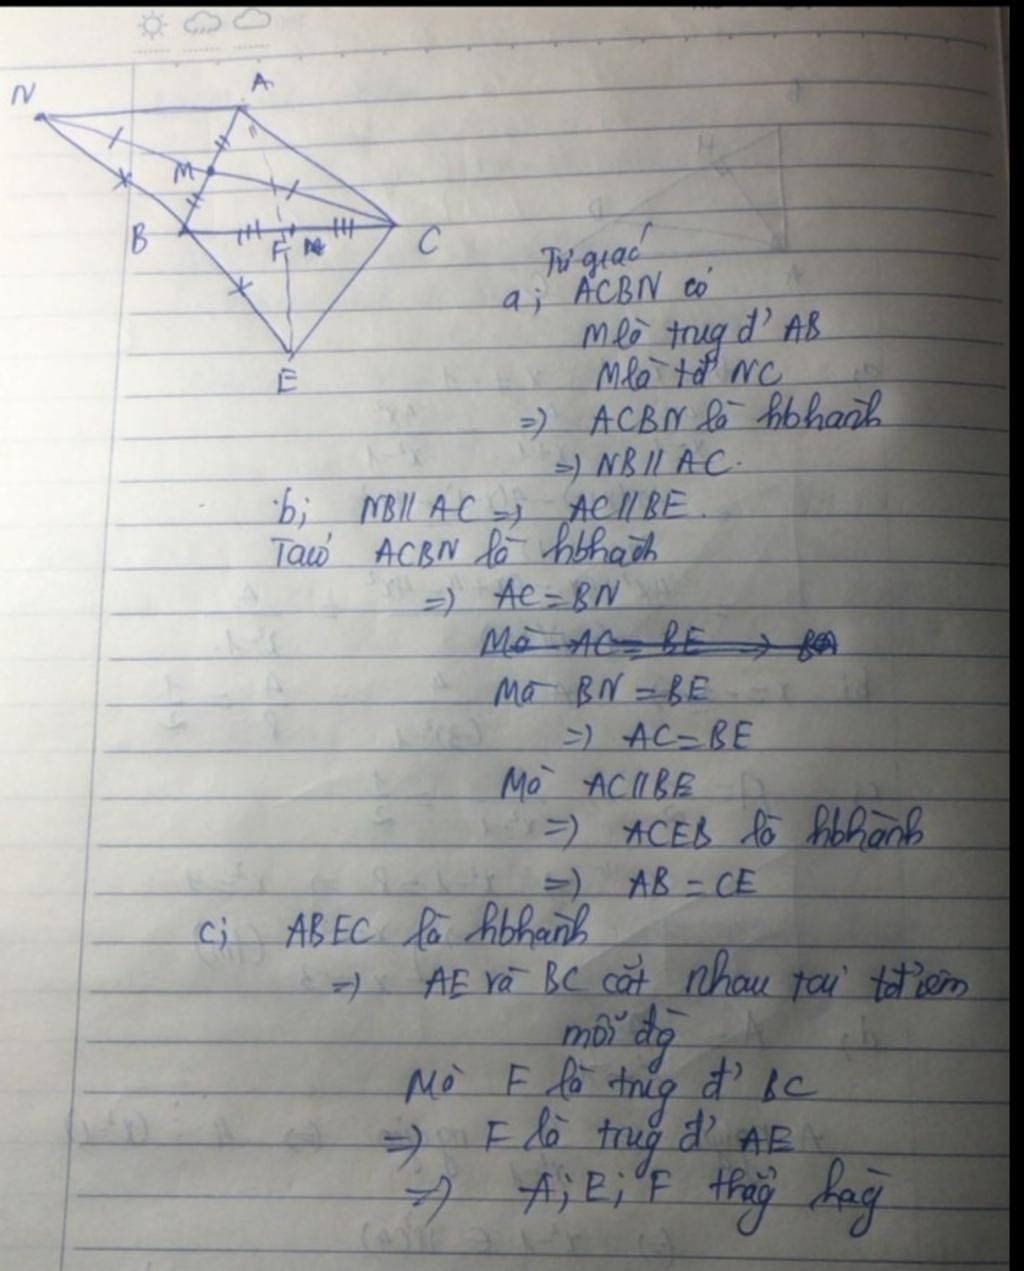 N
A
M
B
F
C
E
Tứ giác
a; ACBN có
M là trug đ' AB
M là tđ' NC
=) ACBN là hbhành
=) NB // AC.
b; NB // AC =) AC // BE.
Ta có ACBN là hbhành
=) AC = BN
Mà AC = BE
Mà BN = BE
=) AC = BE
Mà AC // BE
=) ACEB là hbhành
=) AB = CE
c; ABEC là hbhành
=) AE và BC cắt nhau tại tđ'iểm
mỗi đg̀
Mà F là trug đ' BC
=) F là trug đ' AE
=) A; E; F thẳg hàg